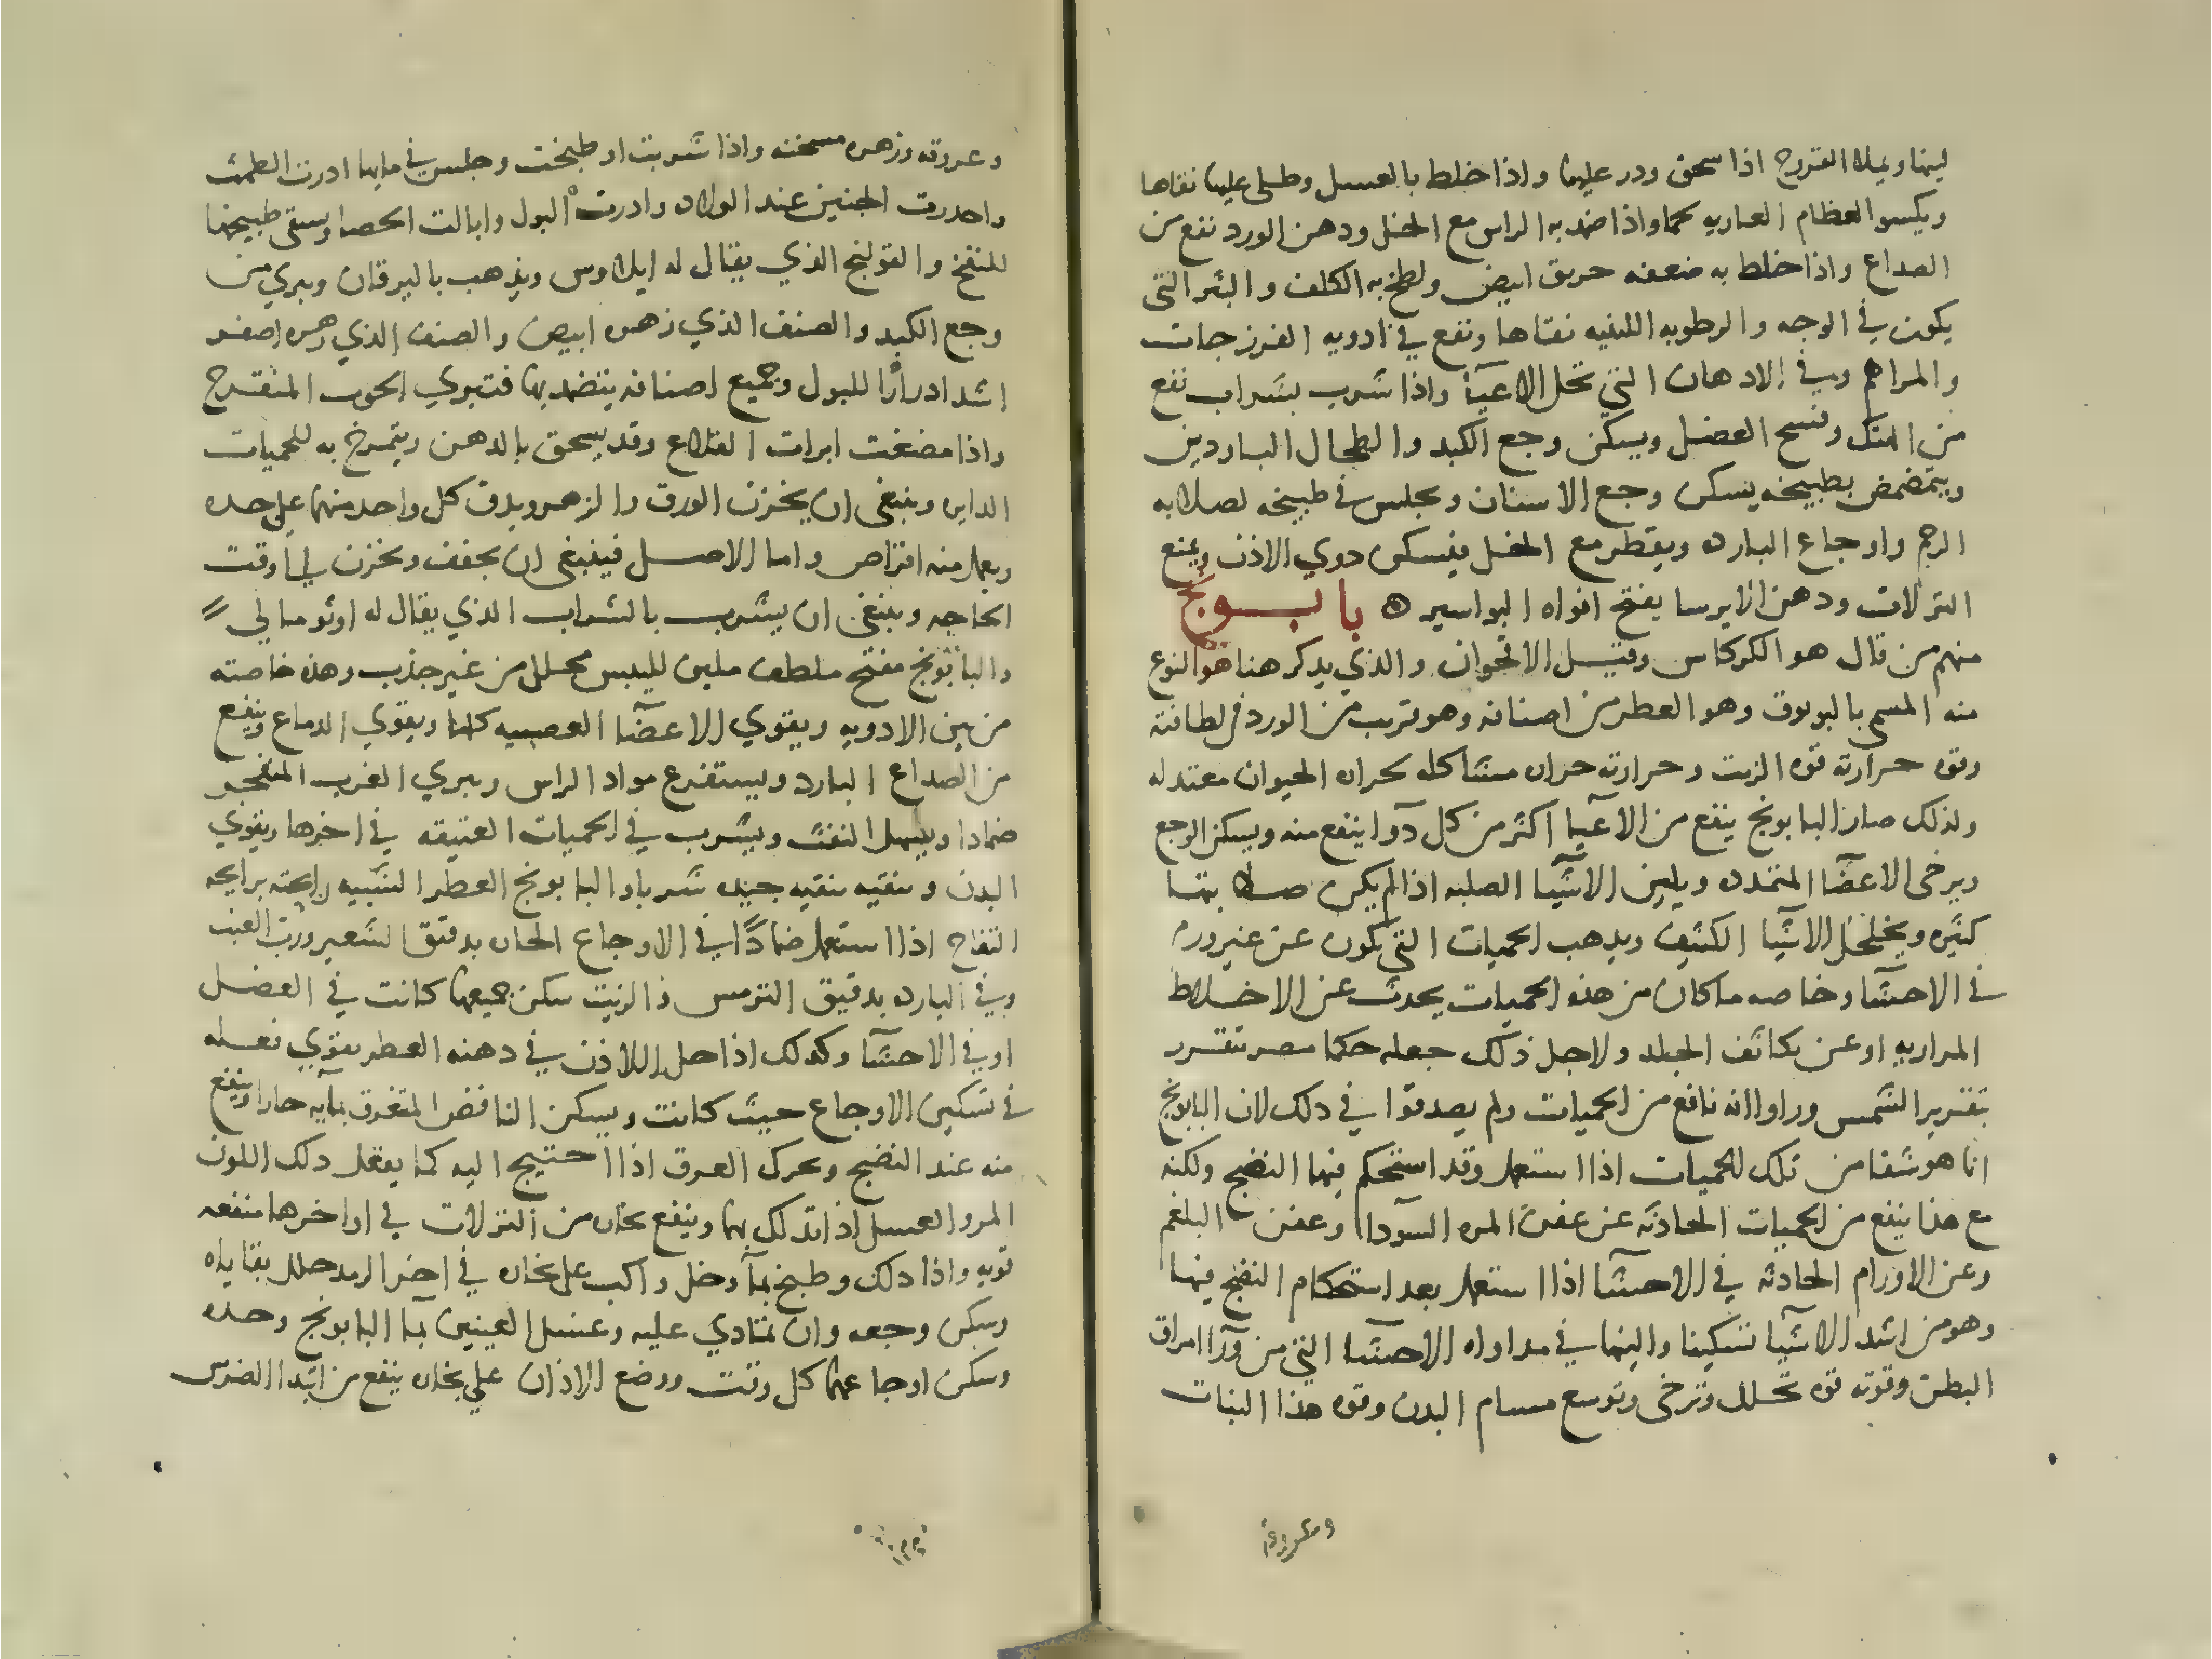 ليها ويملا القروح اذا سحق ودر عليها واذا خلط بالعسل وطلي عليها نقاها
ويكسوا العظام العاريه لحما واذا ضمد به الراس مع الخل ودهن الورد نفع من
الصداع واذا خلط به ضعفه خربق ابيض ولطخ به الكلف والبثر التي
يكون في الوجه والرطوبه اللبنيه نقاها ونفع في ادويه الفرزجات
والمراهم وفي الادهان التي تحل الاعيآ واذا شرب بشراب نفع
من الهتك وفسح العضل ويسكن وجع الكبد والطحال الباردين
ويتمضمض بطبيخه يسكن وجع الاسنان ويجلس في طبيخه لصلابه
الرحم واوجاع البارده ويقطر مع الخل فيسكن دوي الاذن ويمنع
النزلات ودهن الايرسا يفتح افواه البواسير ه بابونج
منهم من قال هو الكركاس وقيل الاقحوان والذي يذكر هنا هو النوع
منه المسمي بالبونوق وهو العطر من اصنافه وهو قريب من الورد في لطافته
وقوه حرارته قوه الزيت وحرارته حراره مشاكله لحراره الحيوان معتدله
ولذلك صار البابونج ينفع من الاعيآ اكثر من كل دوآ ينفع منه ويسكن الوجع
ويرخي الاعضآ المتمدده ويلين الاشيآ الصلبه اذا لم يكن صلابتها
كثيره ويخلخل الاشيآ الكثيفه ويذهب الحميات التي تكون عن غير ورم
في الاحشآ وخاصه ماكان من هذه الحميات يحدث عن الاخلاط
المراريه او عن تكاثف الجلد ولاجل ذلك جعله حكما مصر تقرر
بتقرير الشمس وراوا انه نافع من الحميات ولم يصدقوا في ذلك لان البابونج
انما هو شفا من تلك الحميات اذا استعمل وقد استحكم فيها النضج ولكنه
مع هذا ينفع من الحميات الحادثه عن عفن المره السودآ وعفن البلغم
وعن الاورام الحادثه في الاحشآ اذا استعمل بعد استحكام النضج فيها
وهو من اشد الاشيآ تسكينا والينها في مداواه الاحشآ التي من ورآ امراق
البطن وقوته قوه تحلل وترخي وتوسع مسام البدن وقوه هذا النبات
وعروقه
وعروقه وزهره مسخنه واذا شربت او طبخت وجلس في مايها ادرت الطمث
واحدرت الجنين عند الولاده وادرت البول وابالت الحصا ويسقي طبيخها
للنفخ والقولنج الذي يقال له ايلاوس ويذهب باليرقان ويبري من
وجع الكبد والصنف الذي زهره ابيض والصنف الذي زهره اصفر
اشد ادرارًا للبول وجميع اصنافه يتضمد بها فتبري الجرب المتقرح
واذا مضغت ابرات القلاع وقد يسحق بالدهن ويتمرخ به للحميات
الدايره وينبغي ان يخزن الورق والزهر ويدق كل واحد منها علي حده
ويعمل منه اقراص واما الاصل فينبغي ان يجفف ويخزن الي وقت
الحاجه وينبغي ان يشرب بالشراب الذي يقال له اونومالي
والبابونج مفتح ملطف ملين لليبس محلل من غير جذب وهذه خاصته
من بين الادويه ويقوي الاعضآ العصبيه كلها ويقوي الدماغ وينفع
من الصداع البارد ويستفرغ مواد الراس ويبري الغرب المنفجر
ضمادا ويسهل النفث ويشرب في الحميات العتيقه في اخرها ويقوي
البدن وينقيه تنقيه جيده شربا والبابونج العطر الشبيه رايحته برايحه
التفاح اذا استعمل ضمادًا في الاوجاع الحاره بدقيق الشعير ورب العنب
وفي البارده بدقيق الترمس والزيت سكن جميعها كانت في العضل
او في الاحشآ وكذلك اذا حل اللاذن في دهنه العطر يقوي فعله
في تسكين الاوجاع حيث كانت ويسكن النافض المتغرق بمآيه حارا وينفع
منه عند النضج ويحرك العرق اذا احتيج اليه كما يفعل ذلك اللون
المر والعسل اذا تدلك بها وينفع بخاره من النزلات في اواخرها منفعه
قويه واذا دلك وطبخ بمآ وخل واكب علي بخاره في اخر الرمد حلل بقاياه
وسكن وجعه وان تمادي عليه وغسل العينين بمآ البابونج وحده
وسكن اوجاعها كل وقت ووضع الاذان علي بخاره ينفع من ابتدا الضرس